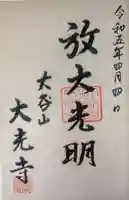 令和五年四月四日
放大光明
大光寺